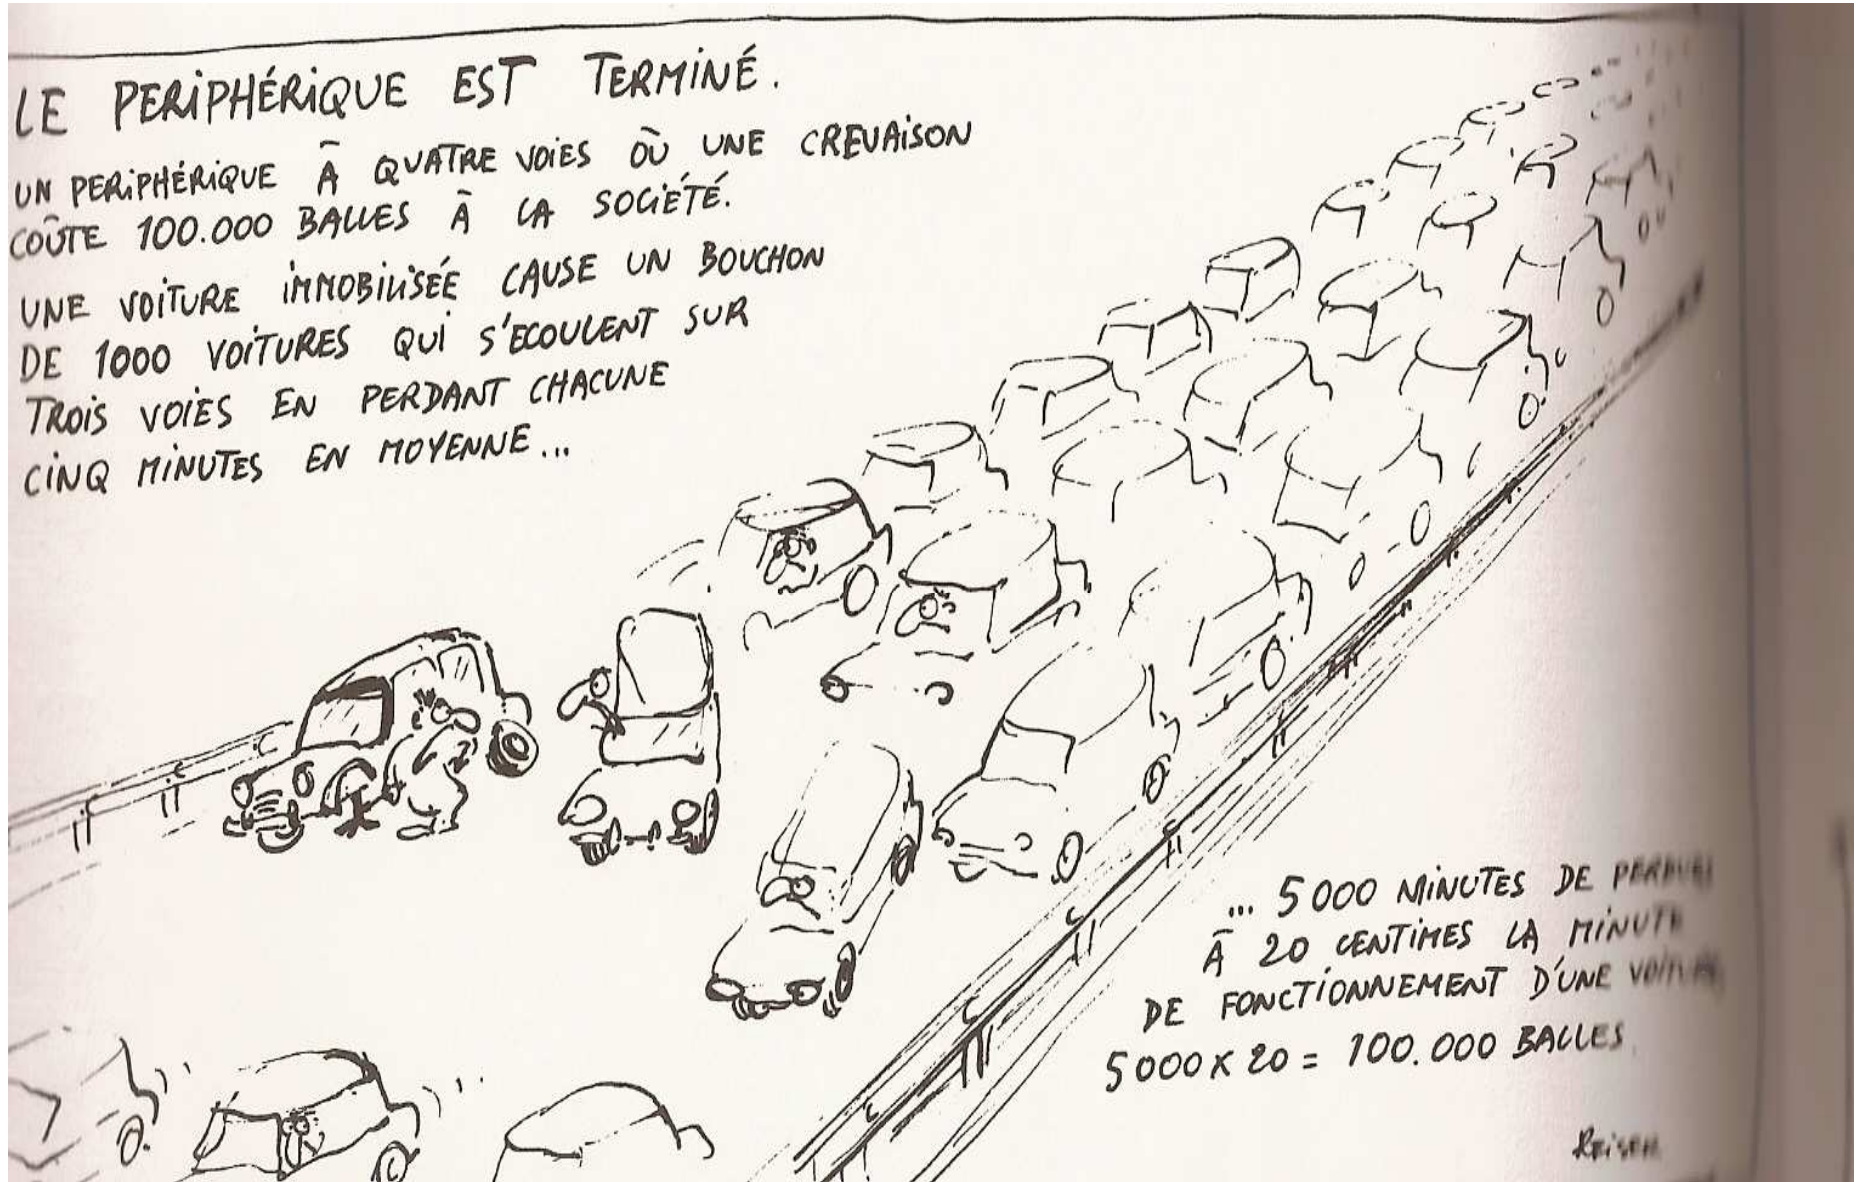 LE PERIPHÉRIQUE EST TERMINÉ.
UN PERIPHÉRIQUE À QUATRE VOIES OÙ UNE CREVAISON
COÛTE 100.000 BALLES À LA SOCIÉTÉ.
UNE VOITURE IMMOBILISÉE CAUSE UN BOUCHON
DE 1000 VOITURES QUI S'ECOULENT SUR
TROIS VOIES EN PERDANT CHACUNE
CINQ MINUTES EN MOYENNE...
... 5000 MINUTES DE PERDUES
À 20 CENTIMES LA MINUTE
DE FONCTIONNEMENT D'UNE VOITURE
5000 X 20 = 100.000 BALLES
REISER